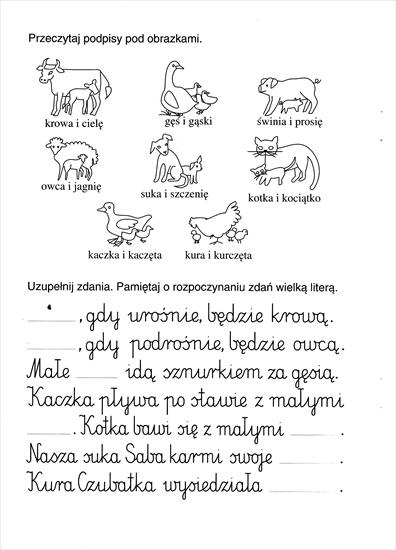 Przeczytaj podpisy pod obrazkami.
krowa i cielę
gęś i gąski
świnia i prosię
owca i jagnię
suka i szczenię
kotka i kociątko
kaczka i kaczęta
kura i kurczęta
Uzupełnij zdania. Pamiętaj o rozpoczynaniu zdań wielką literą.
______, gdy urośnie, będzie krową.
______, gdy podrośnie, będzie owcą.
Małe ______ idą sznurkiem za gęsią.
Kaczka pływa po stawie z małymi
______. Kotka bawi się z małymi ______.
Nasza suka Saba karmi swoje ______.
Kura Czubatka wysiedziała ______.